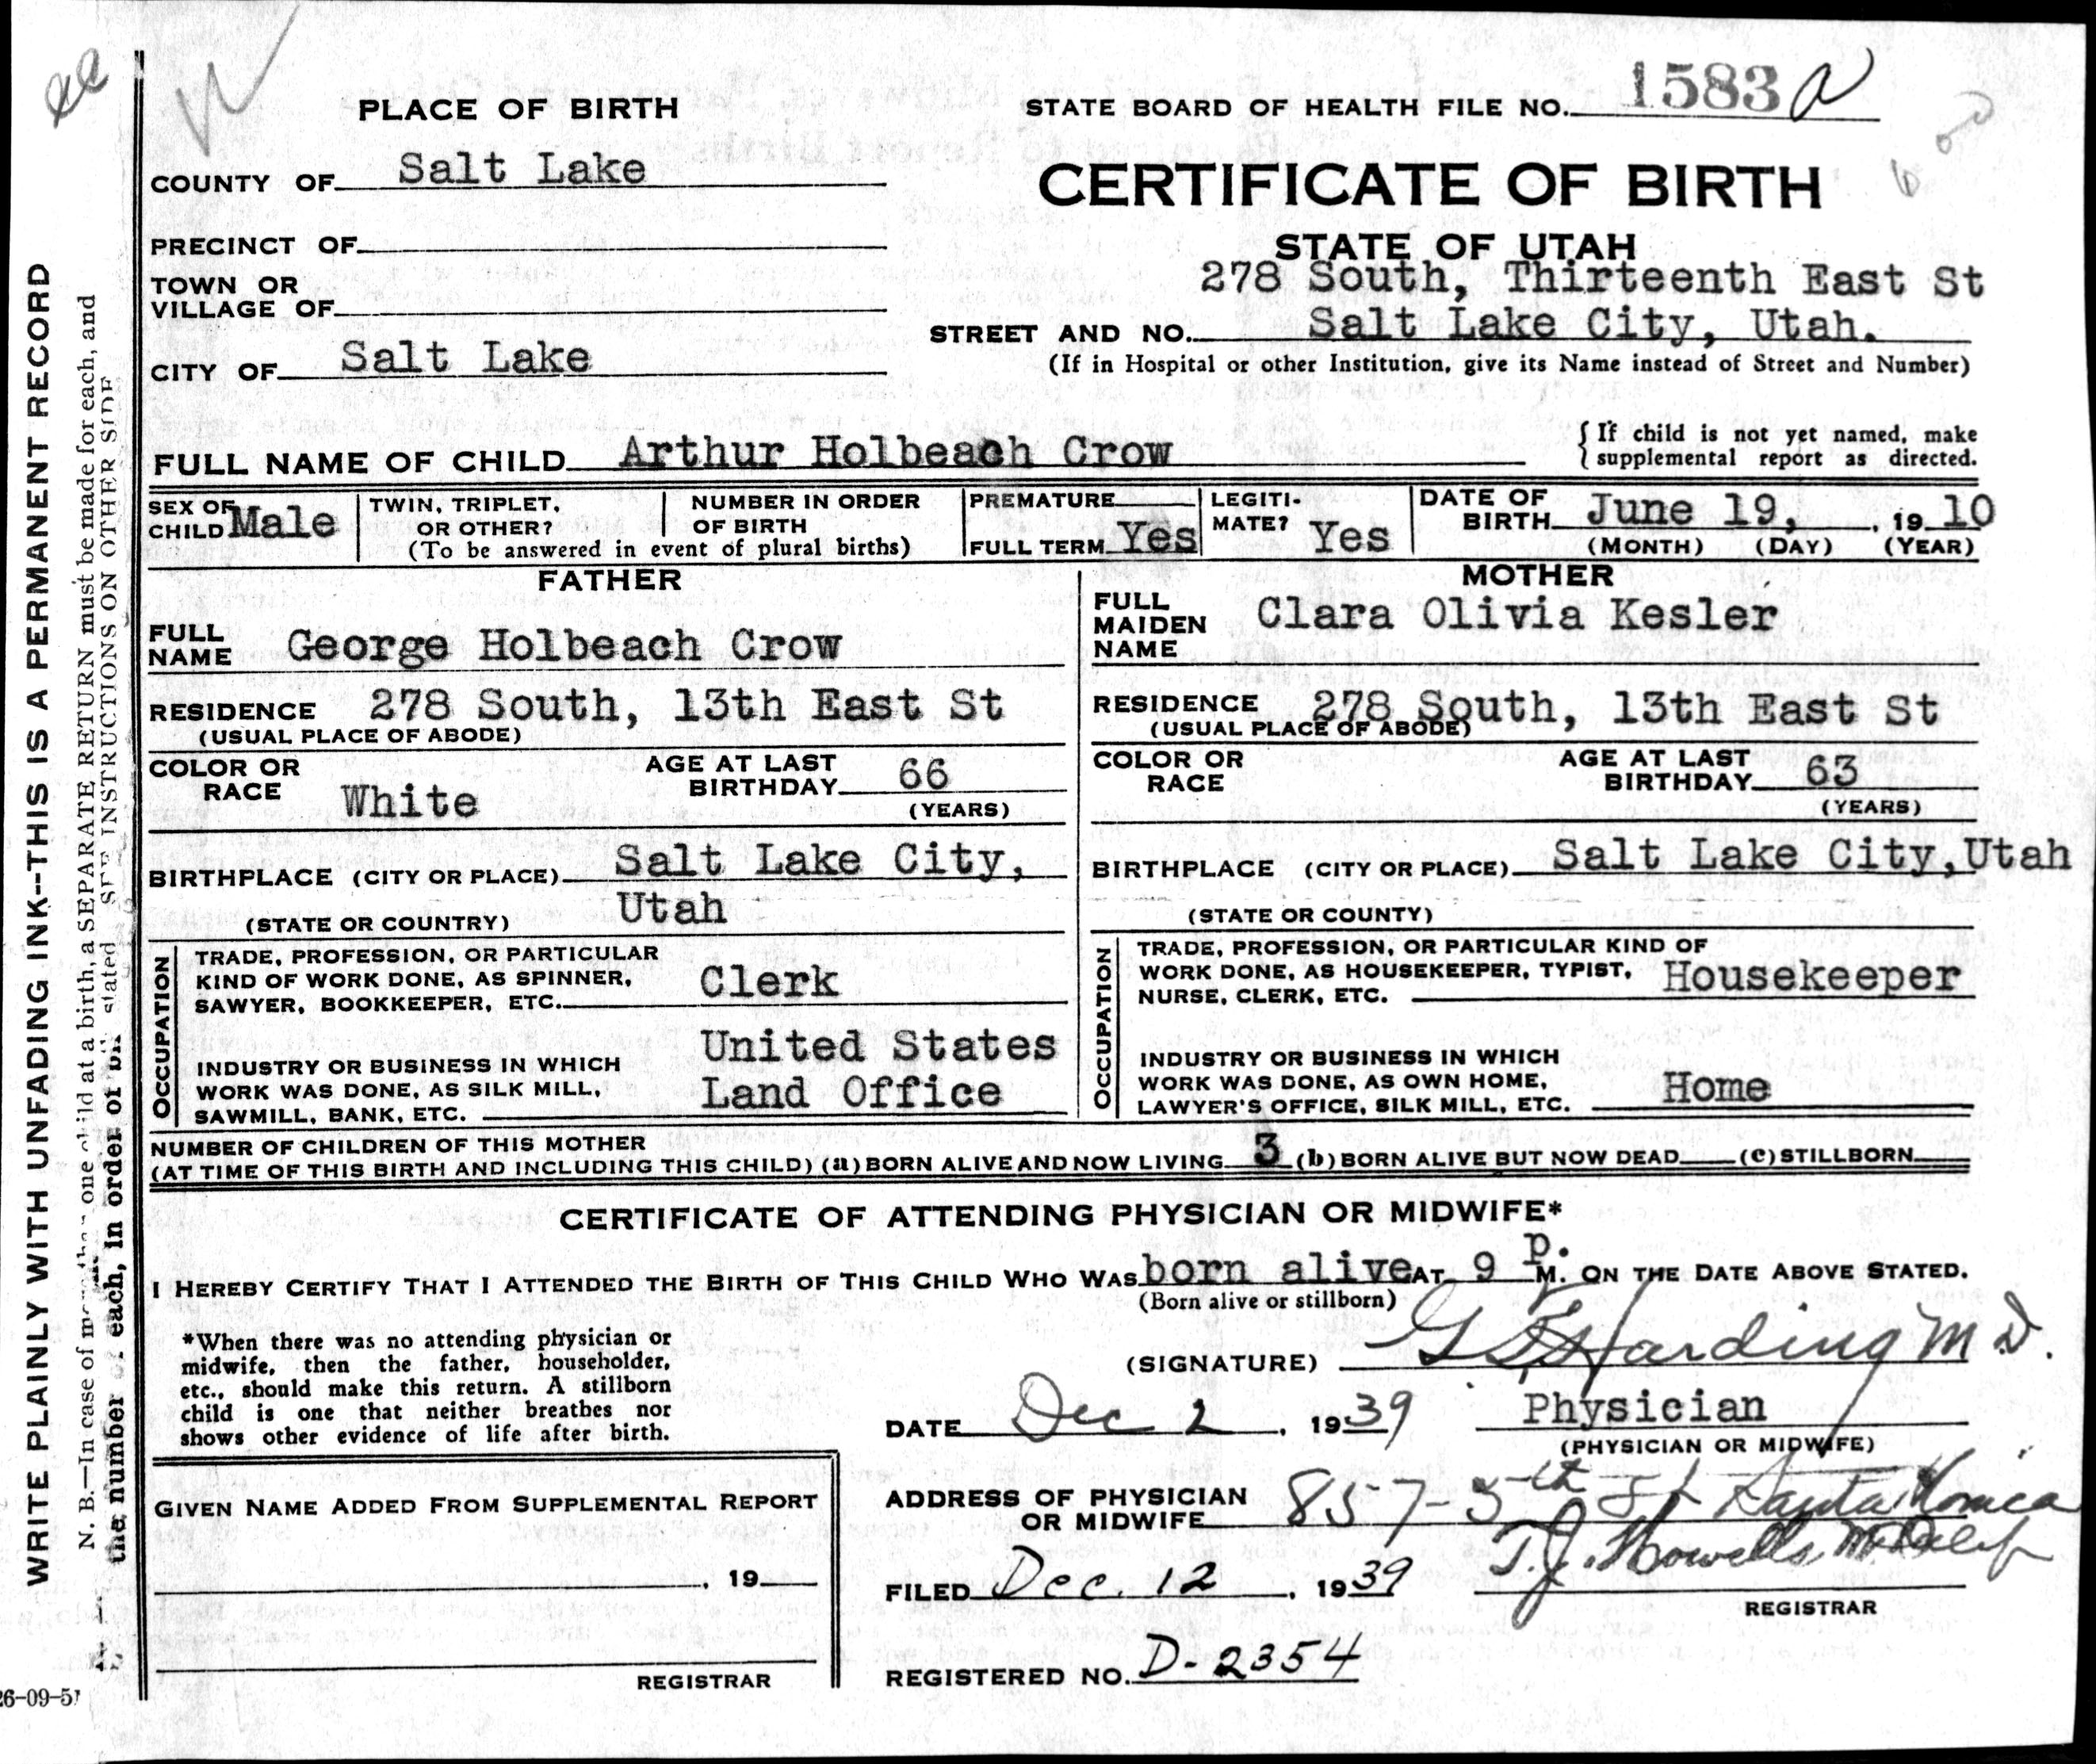 PLACE OF BIRTH
STATE BOARD OF HEALTH FILE NO. 1583 a
COUNTY OF Salt Lake
CERTIFICATE OF BIRTH
PRECINCT OF
STATE OF UTAH
TOWN OR
VILLAGE OF
278 South, Thirteenth East St
STREET AND NO. Salt Lake City, Utah.
CITY OF Salt Lake
(If in Hospital or other Institution, give its Name instead of Street and Number)
FULL NAME OF CHILD Arthur Holbeach Crow
{ If child is not yet named, make
supplemental report as directed.
SEX OF
CHILD Male
TWIN, TRIPLET,
OR OTHER?
NUMBER IN ORDER
OF BIRTH
(To be answered in event of plural births)
PREMATURE
FULL TERM Yes
LEGITI-
MATE? Yes
DATE OF
BIRTH June 19, , 19 10
(MONTH) (DAY) (YEAR)
FATHER
FULL
NAME George Holbeach Crow
RESIDENCE 278 South, 13th East St
(USUAL PLACE OF ABODE)
COLOR OR
RACE White
AGE AT LAST
BIRTHDAY 66
(YEARS)
BIRTHPLACE (CITY OR PLACE) Salt Lake City,
(STATE OR COUNTRY) Utah
OCCUPATION
TRADE, PROFESSION, OR PARTICULAR
KIND OF WORK DONE, AS SPINNER,
SAWYER, BOOKKEEPER, ETC. Clerk
INDUSTRY OR BUSINESS IN WHICH
WORK WAS DONE, AS SILK MILL,
SAWMILL, BANK, ETC. United States
Land Office
MOTHER
FULL
MAIDEN
NAME Clara Olivia Kesler
RESIDENCE 278 South, 13th East St
(USUAL PLACE OF ABODE)
COLOR OR
RACE
AGE AT LAST
BIRTHDAY 63
(YEARS)
BIRTHPLACE (CITY OR PLACE) Salt Lake City, Utah
(STATE OR COUNTY)
OCCUPATION
TRADE, PROFESSION, OR PARTICULAR KIND OF
WORK DONE, AS HOUSEKEEPER, TYPIST,
NURSE, CLERK, ETC. Housekeeper
INDUSTRY OR BUSINESS IN WHICH
WORK WAS DONE, AS OWN HOME,
LAWYER'S OFFICE, SILK MILL, ETC. Home
NUMBER OF CHILDREN OF THIS MOTHER
(AT TIME OF THIS BIRTH AND INCLUDING THIS CHILD) (a) BORN ALIVE AND NOW LIVING 3 (b) BORN ALIVE BUT NOW DEAD (c) STILLBORN
CERTIFICATE OF ATTENDING PHYSICIAN OR MIDWIFE*
I HEREBY CERTIFY THAT I ATTENDED THE BIRTH OF THIS CHILD WHO WAS born alive AT 9 p. M. ON THE DATE ABOVE STATED.
(Born alive or stillborn)
*When there was no attending physician or
midwife, then the father, householder,
etc., should make this return. A stillborn
child is one that neither breathes nor
shows other evidence of life after birth.
(SIGNATURE) Harding M D.
DATE Dec 2 , 19 39
Physician
(PHYSICIAN OR MIDWIFE)
ADDRESS OF PHYSICIAN
OR MIDWIFE 857-5th St Santa Monica
Calif
T. J. Howells
FILED Dec. 12 , 19 39
REGISTRAR
REGISTERED NO. D-2354
GIVEN NAME ADDED FROM SUPPLEMENTAL REPORT
, 19
REGISTRAR
WRITE PLAINLY WITH UNFADING INK--THIS IS A PERMANENT RECORD
N. B.—In case of more than one child at a birth, a SEPARATE RETURN must be made for each, and
the number of each, in order of birth stated SEE INSTRUCTIONS ON OTHER SIDE
26-09-51